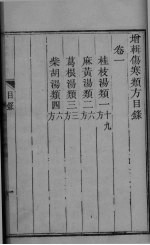 增輯傷寒類方目錄
卷一
桂枝湯類一方十九
麻黃湯類二方六
葛根湯類三方三
柴胡湯類四方六
目錄